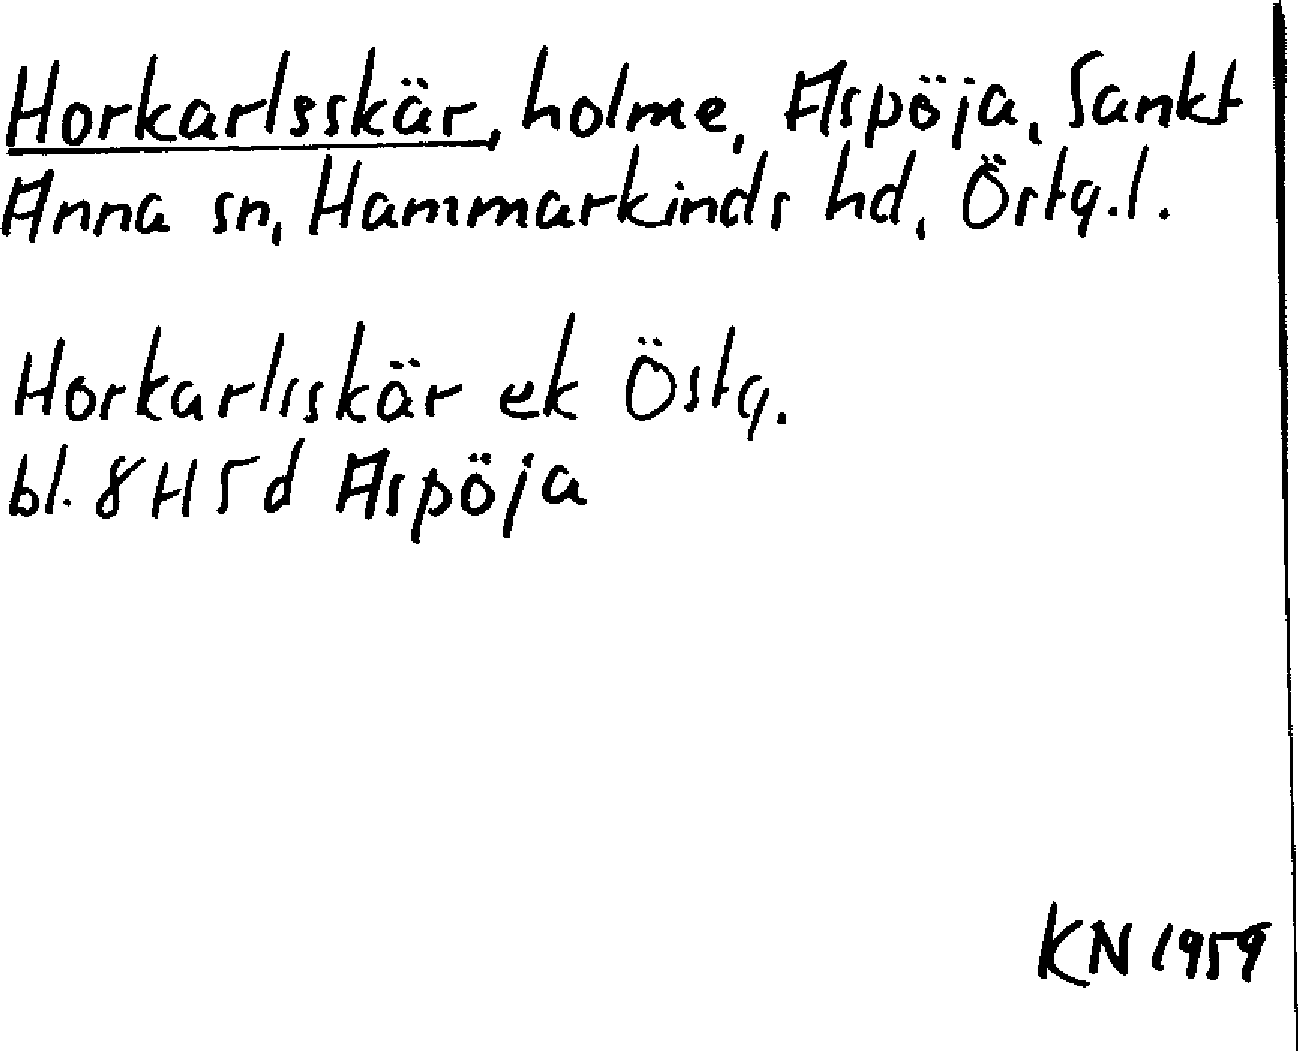 Horkarlsskär, holme, Aspöja, Sankt
Anna sn, Hammarkinds hd, Östg.l.
Horkarlsskär ek Östg.
bl. 8H5d Aspöja
KN 1959